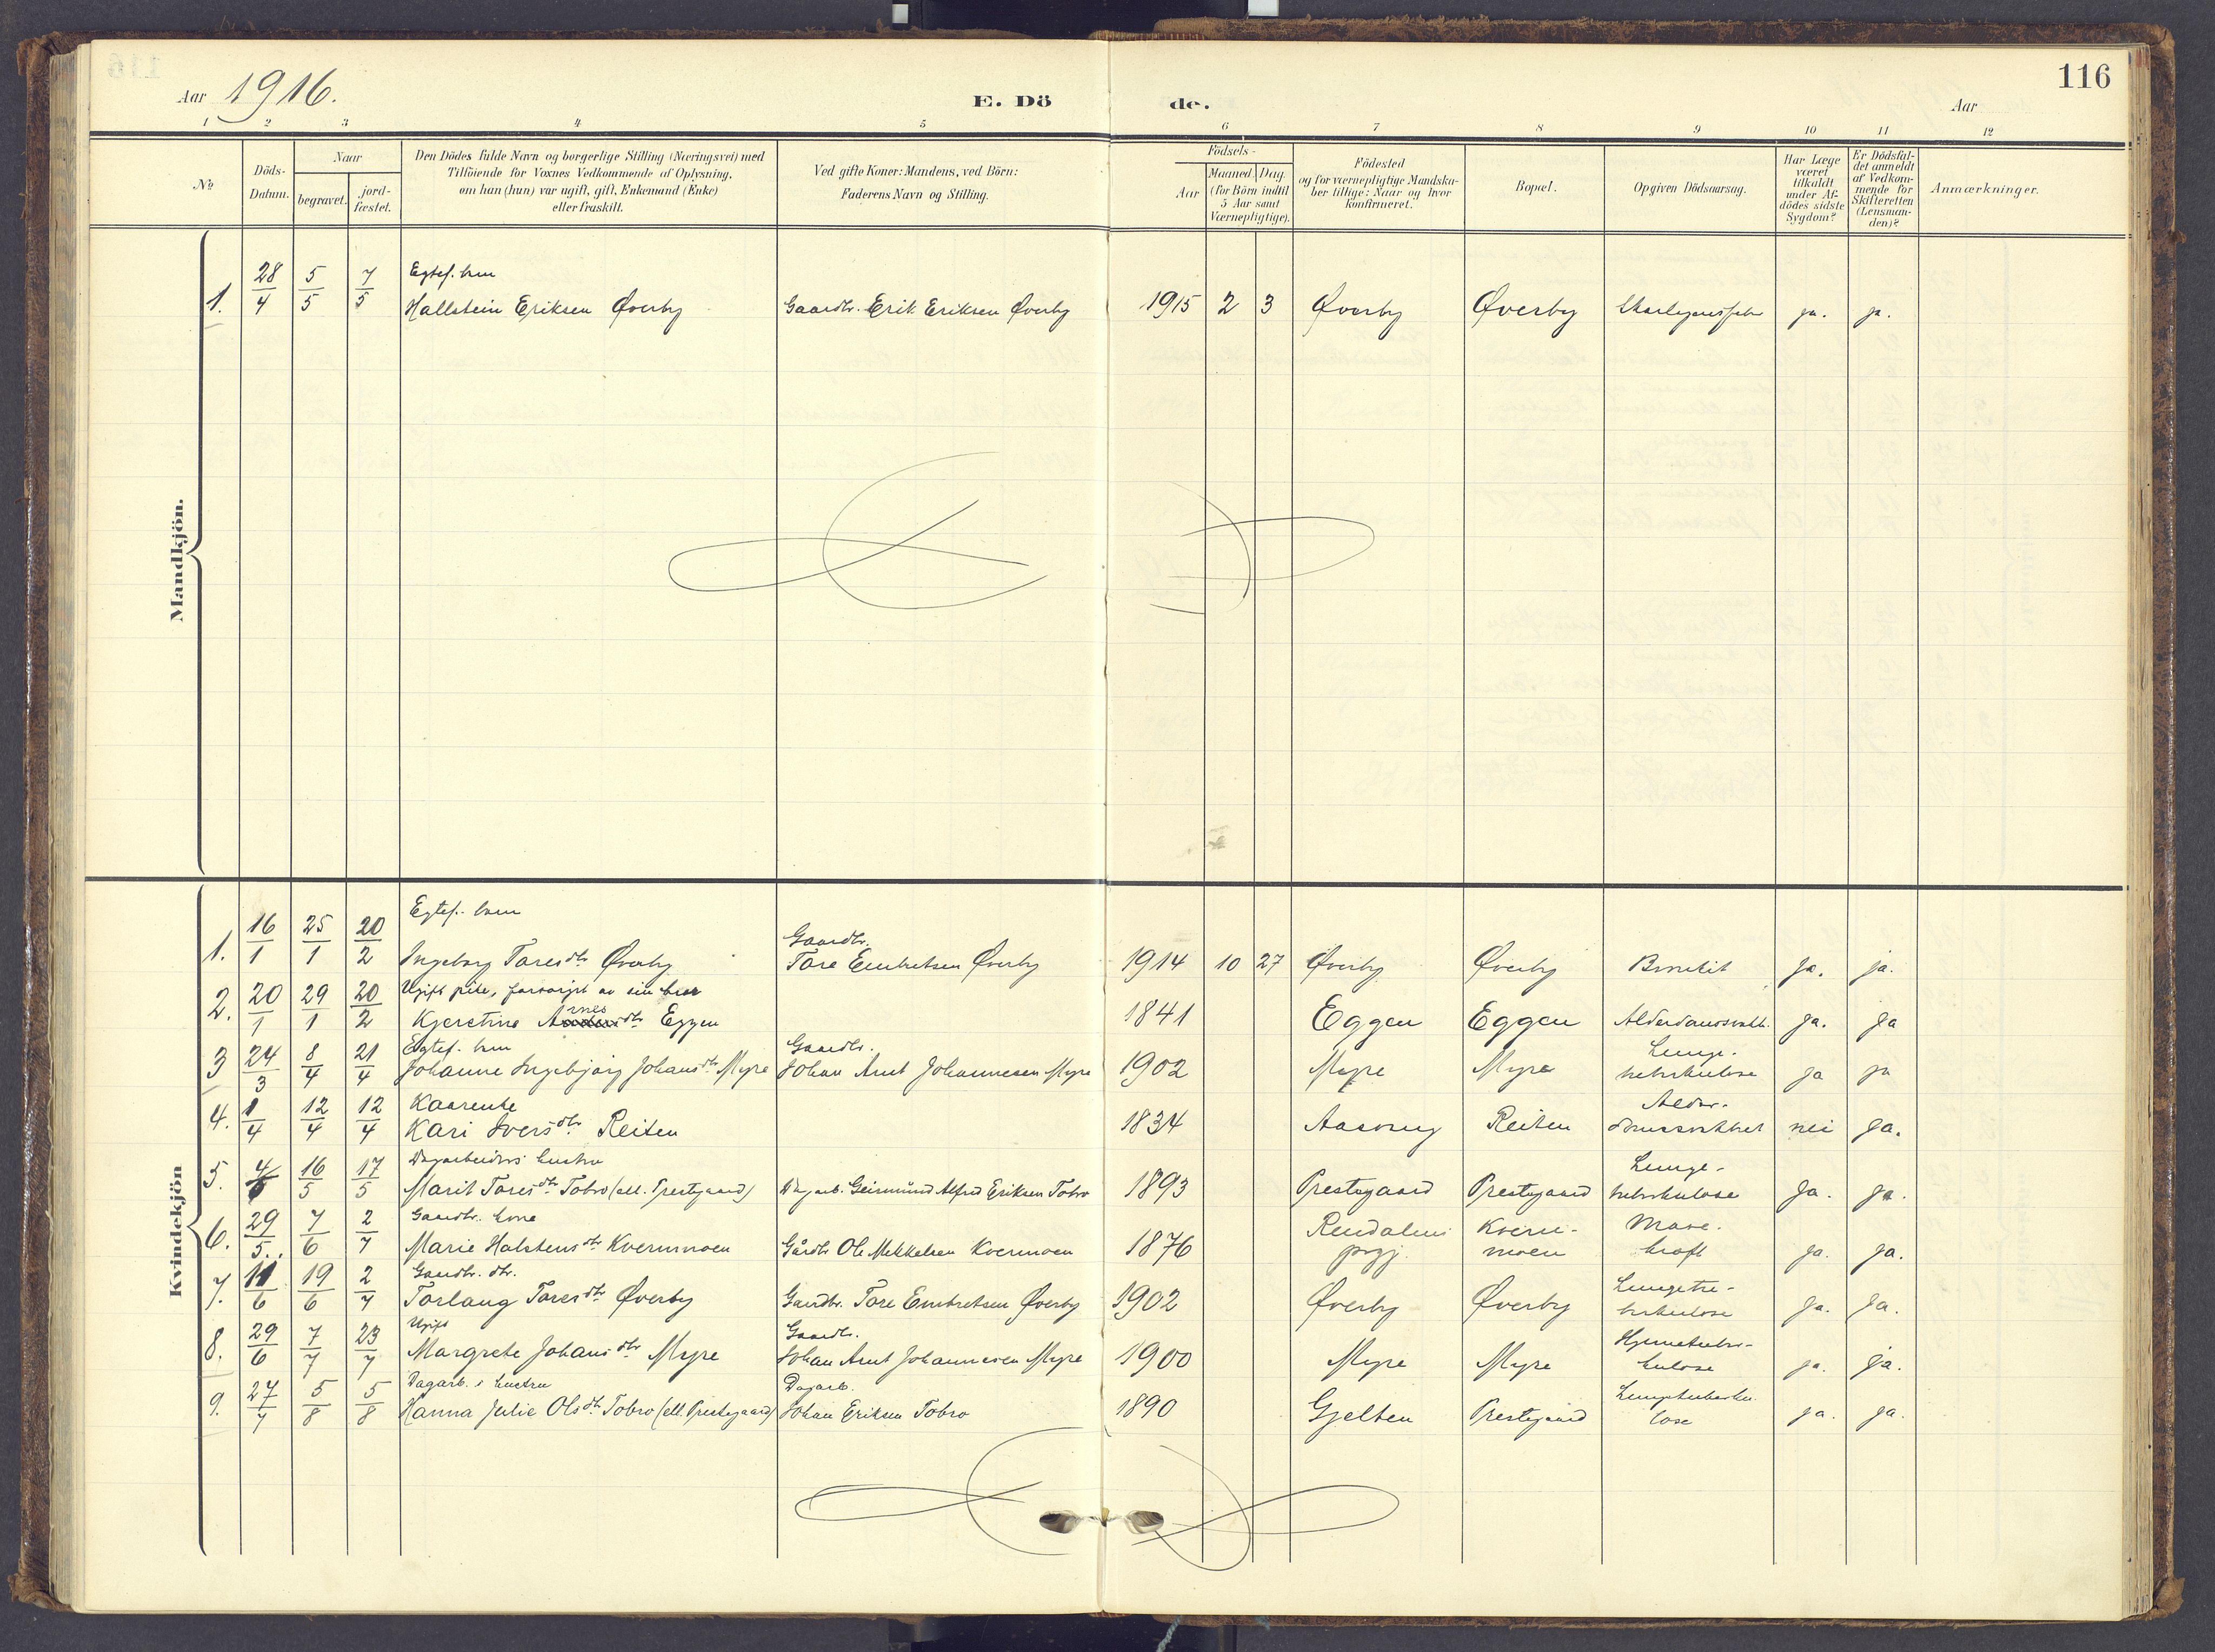 116
Aar 1916.
E. Dö de.
Aar
1 2 3 4 5 6 7 8 9 10 11 12
No
Döds-
Datum.
Naar
begravet.
jord-
fæstet.
Den Dödes fulde Navn og borgerlige Stilling (Næringsvei) med
Tilföiende for Voxnes Vedkommende af Oplysning,
om han (hun) var ugift, gift, Enkemand (Enke)
eller fraskilt.
Ved gifte Koner: Mandens, ved Börn:
Faderens Navn og Stilling.
Födsels-
Aar
Maaned. Dag.
(for Börn indtil
5 Aar samt
Værnepligtige).
Födested
og for værnepligtige Mandska-
ber tillige: Naar og hvor
konfirmeret.
Bopæl.
Opgiven Dödsaarsag.
Har Læge
været
tilkaldt
under Af-
dödes sidste
Sygdom?
Er Dödsfal-
det anmeldt
af Vedkom-
mende for
Skifteretten
(Lensman-
den)?
Anmærkninger.
Mandkjön.
Egtef. barn
1. 28/4 5/5 7/5 Hallstein Eriksen Øverby Gaardbr. Erik Eriksen Øverby 1915 2 3 Øverby Øverby ja. ja.
Kvindekjön
Egtef. barn
Gaardbr.
1. 16/1 25/1 20/2 Ingeborg Tores dtr Øverby Tore Embretsen Øverby 1914 10 27 Øverby Øverby Bronkit ja. ja.
Ugift pike, forsørget av sin bror
2. 20/1 29/1 20/2 Kjerstine Arnes dtr Eggen 1841 Eggen Eggen Alderdomssvakh. ja. ja
Egtef. barn Gaardbr. Lunge-
3 24/3 8/4 21/4 Johanne Ingebjørg Johans dtr Myre Johan Arnt Johannesen Myre 1902 Myre Myre tuberkulose ja ja
Kaarenke Alder-
4. 1/4 12/4 12/4 Kari Ivers dtr Reiten 1834 Reiten domssvakhet nei ja.
Dagarbeiders hustru Lunge-
5. 4/5 16/5 17/5 Marit Tores dtr Tobro (ell. Prestegaard) Dagarb. Geirmund Alfred Eriksen Tobro 1893 Prestegaard Prestegaard tuberkulose ja. ja.
Gaardbr. kone Rendalens Kverne- Mave-
6. 29/5. 7/6 2/7 Marie Halstens dtr Kvernmoen Gårdbr Ole Mikkelsen Kvernmoen 1876 prgj. moen kræft ja. ja.
Gaardbr. dtr. Lungetu-
7. 11/6 19/6 2/7 Torlaug Tores dtr Øverby Gaardbr. Tore Embretsen Øverby 1902 Øverby Øverby berkulose ja. ja.
Ugift Gaardbr. Hjernetuber-
8. 29/6 7/7 23/7 Margrete Johans dtr Myre Johan Arnt Johannesen Myre 1900 Myre Myre kulose ja. ja.
Dagarb.s hustru Dagarb. Lungetuberku-
9. 27/7 5/8 5/8 Hanna Julie Ols dtr Tobro (ell. Prestegaard) Johan Eriksen Tobro 1890 Gjelten Prestegaard lose ja. ja.